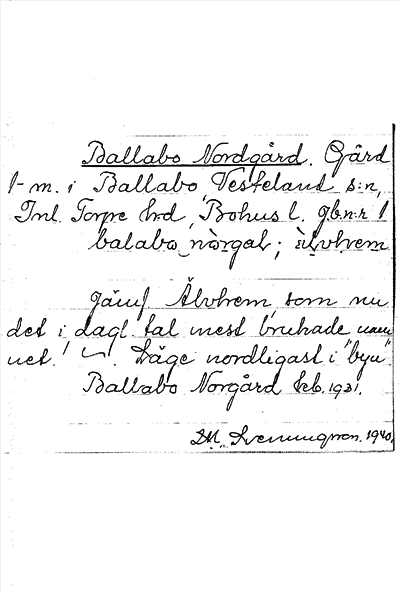 Ballabo Nordgård. Gård
1 m. i Ballabo Västerlanda s:n,
Inl. Torpe hd, Bohus l. gbnr 1
balabo nòrgaḷ; älvhem
Jämf Älvhem som nu
det i dagl. tal mest brukade nam
net. Läge nordligast i "byn".
Ballabo Norgård kb. 1931.
DM Svenningsson. 1940.